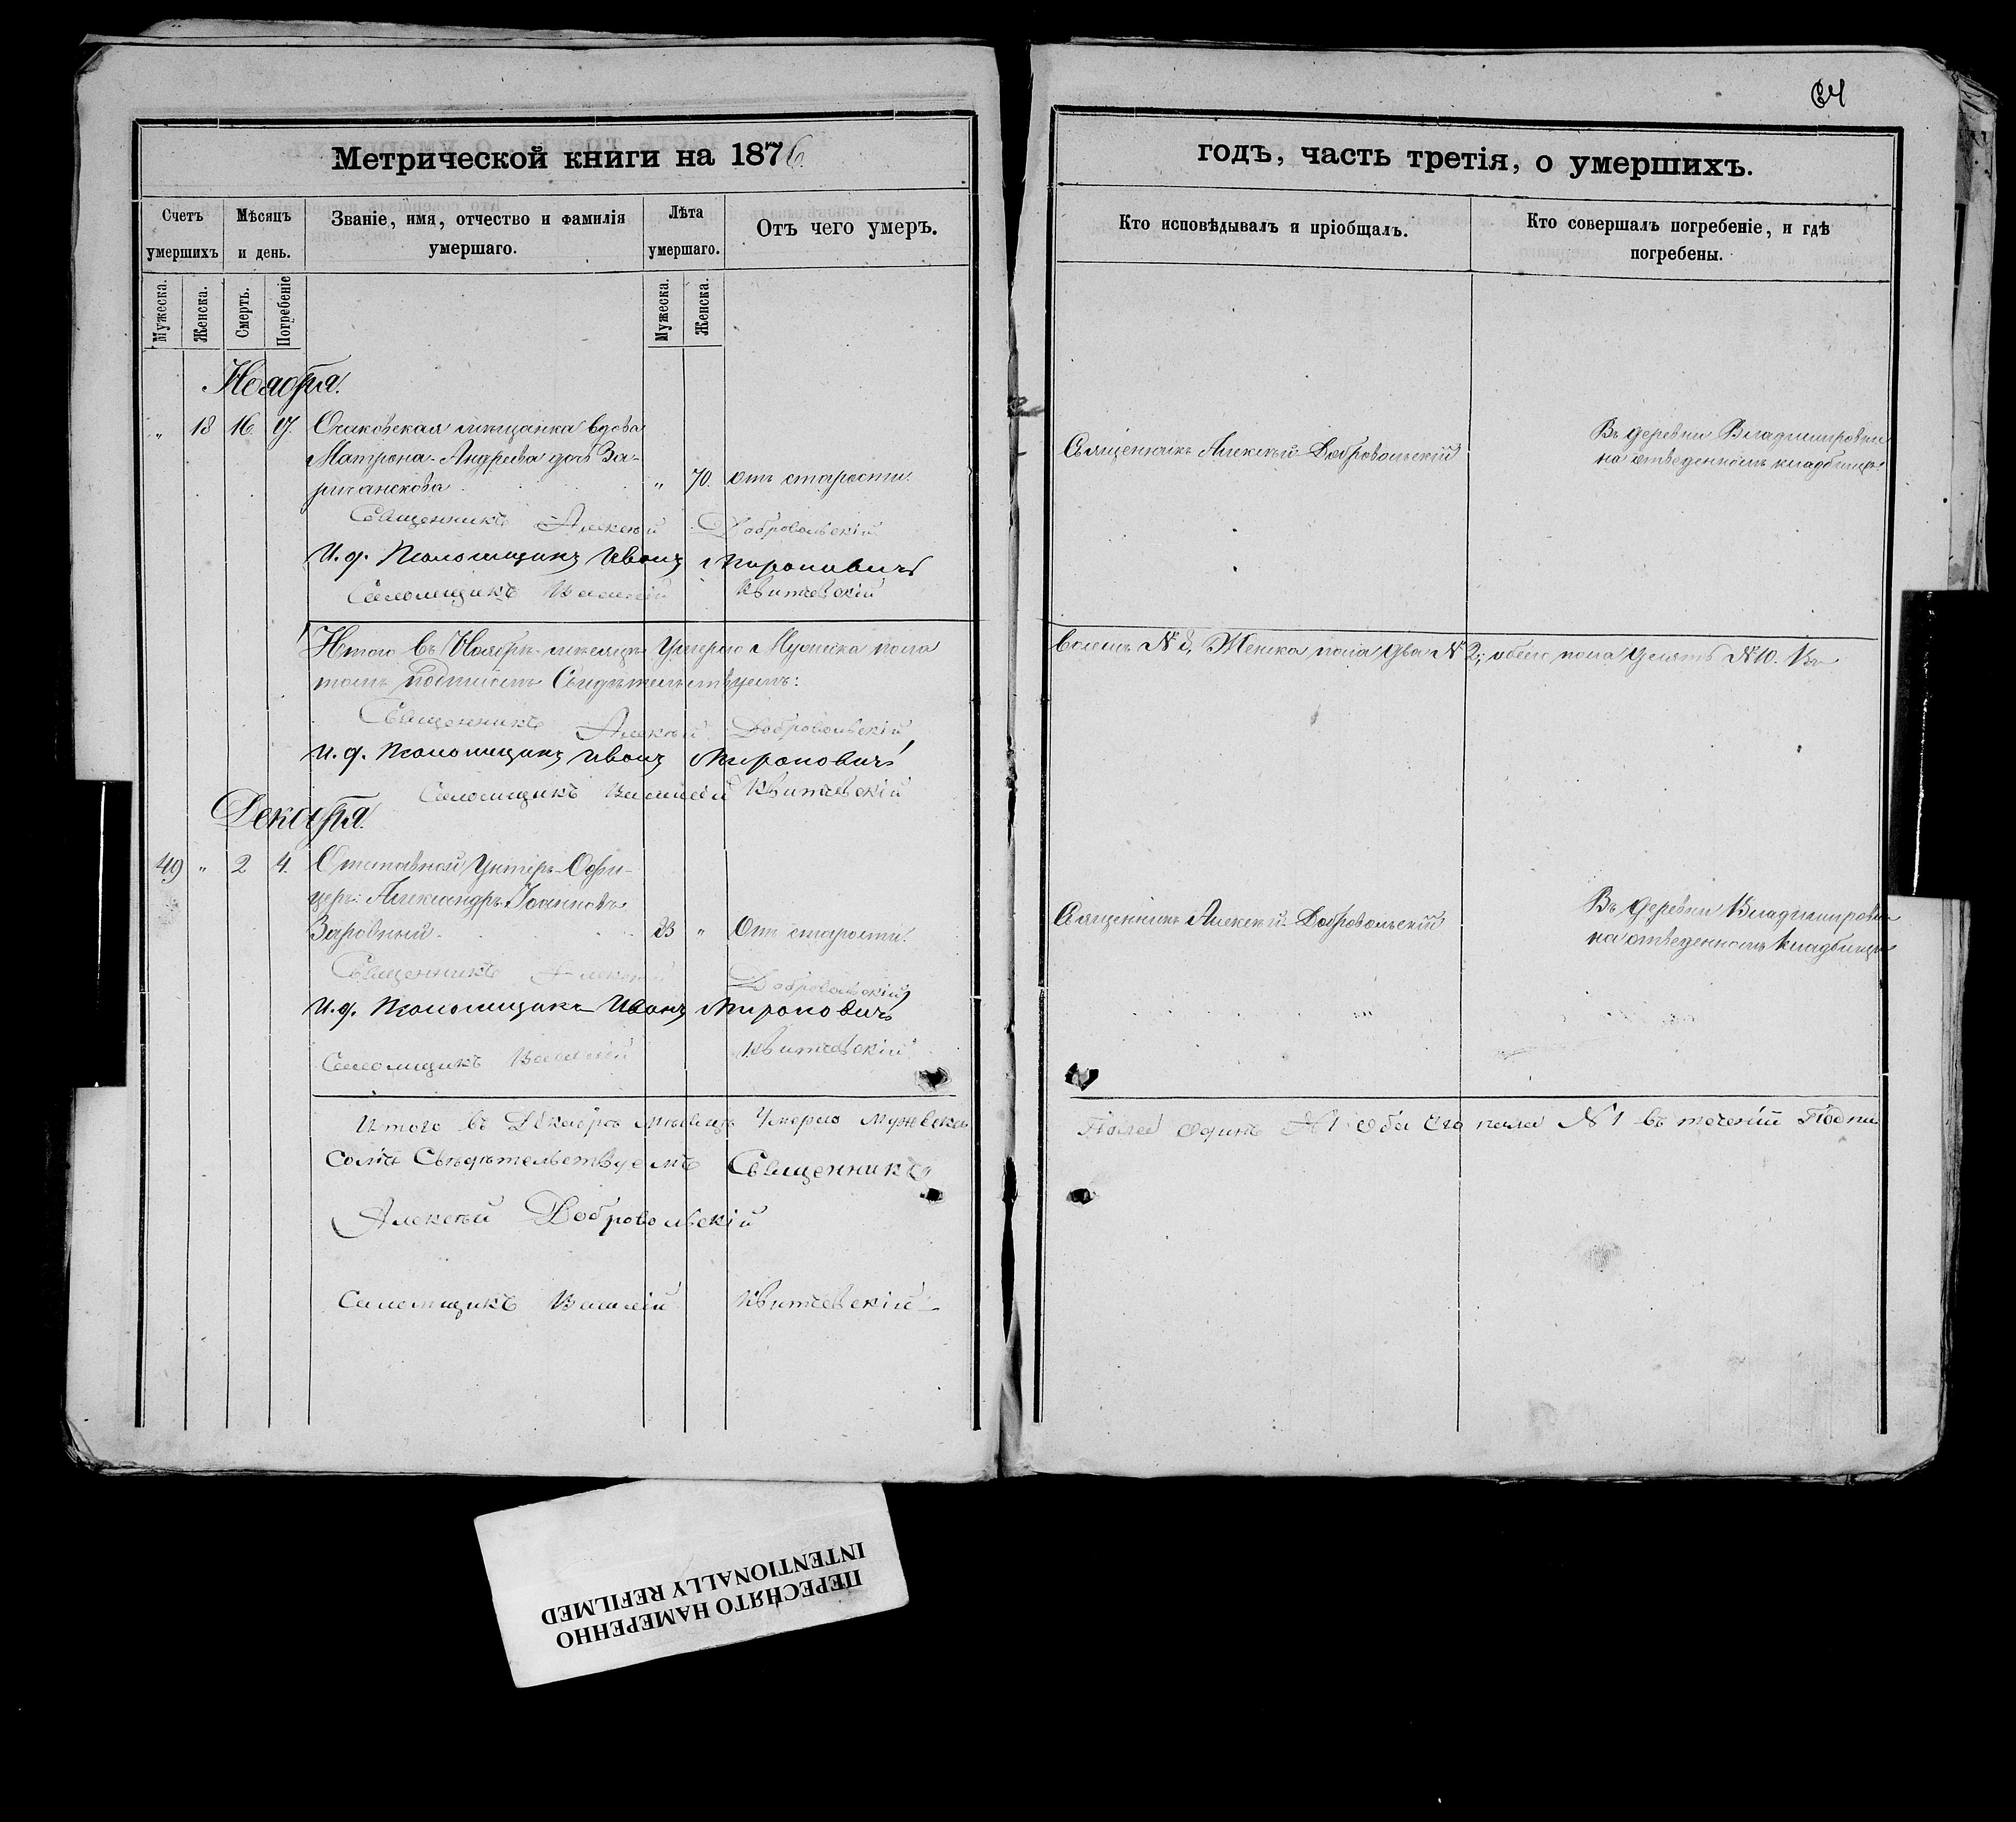 64
Метрической книги на 1876.
годъ, часть третія, о умершихъ.
Счетъ умершихъ
Мѣсяцъ и день.
Званіе, имя, отчество и фамилія умершаго.
Лѣта умершаго.
Отъ чего умеръ.
Кто исповѣдывалъ и пріобщалъ.
Кто совершалъ погребеніе, и гдѣ погребены.
Мужеска.
Женска.
Смерть.
Погребеніе
Мужеска.
Женска.
Ноября.
" 18 16 17. Очаковская мѣщанка вдова
Матрона Андреева дочь За-
" 70. отъ старости.
Священникъ Алексѣй Добровольскій
Въ деревни Владимировки
на отведенномъ кладбищѣ
Священникъ Алексѣй Добровольскій
И. д. Псаломщика Иванъ Мироновичъ
Псаломщикъ Василій Квитчевскій
Итого въ Ноябрѣ мѣсяцѣ Умерло Мужска пола
восемь № 8, Женска пола два № 2; обоего пола десять № 10. Въ
томъ подписомъ Свидѣтельствуемъ:
Священникъ Алексѣй Добровольскій
И. д. Псаломщика Иванъ Мироновичъ
Псаломщикъ Василій Квитчевскій
Декабря.
49 " 2 4. Отставной Унтеръ-Офи-
церъ: Александръ Іоанновъ
" Отъ старости.
Священникъ Алексѣй Добровольскій
Въ деревни Владимировки
на отведенномъ кладбищѣ
Священникъ Алексѣй Добровольскій
И. д. Псаломщика Иванъ Мироновичъ
Псаломщикъ Василій Квитчевскій
Итого въ Декабрѣ мѣсяцѣ Умерло мужеска
Пола одинъ № 1 обоего пола № 1 въ течении Подпи
сомъ Свѣдѣтельствуемъ Священникъ
Алексѣй Добровольскій
Псаломщикъ Василій Квитчевскій
ПЕРЕСНЯТО НАМЕРЕННО
INTENTIONALLY REFILMED